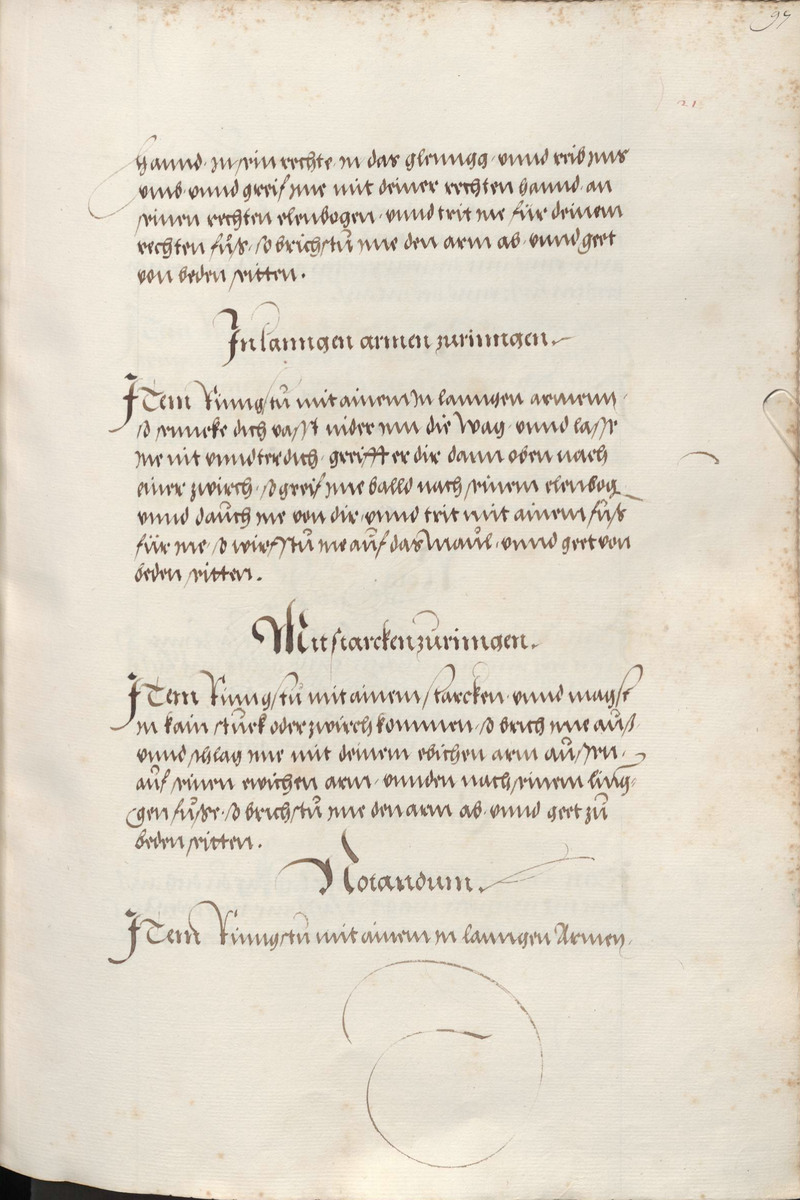 97
21
hannd · jn sein rechte · in das glenngg · vnnd reib jms
vmb · vnnd greif jme mit deiner rechten hannd · an
seinen rechten elenbogen · vnnd trit jme für deinem
rechten fůß · so brichstu jme den arm ab · vnnd geet
von beden seitten .
In lanngen armen zuringen .
ITem Ringstu mit ainem in lanngen armenn ·
so sencke dich vasst nider inn die Wag · vnnd lasse
jne nit vnnder dich · greifft er dir dann oben nach
einer zwirch · so greif jme balld nach seinem elenbog
vnnd dauch jne von dir · vnnd trit mit ainem fůß
für jne · so wirfstu jne auf das Maul · vnnd geet von
beden seitten .
Mit starcken zuringen .
ITem Ringstu mit ainem starcken · vnnd magst
in kain stuck oder zwirch kommen · so brich jme auß ·
vnnd schlag jme mit deinem ebichen arm aussen ·
auf seinen ewichen arm · vnnden nach seinem ling-
gen fůße · so brichstu jme den arm ab · vnnd geet zů
beden seitten .
Notandum .
ITem Ringstu mit ainem in lanngen Armen ·